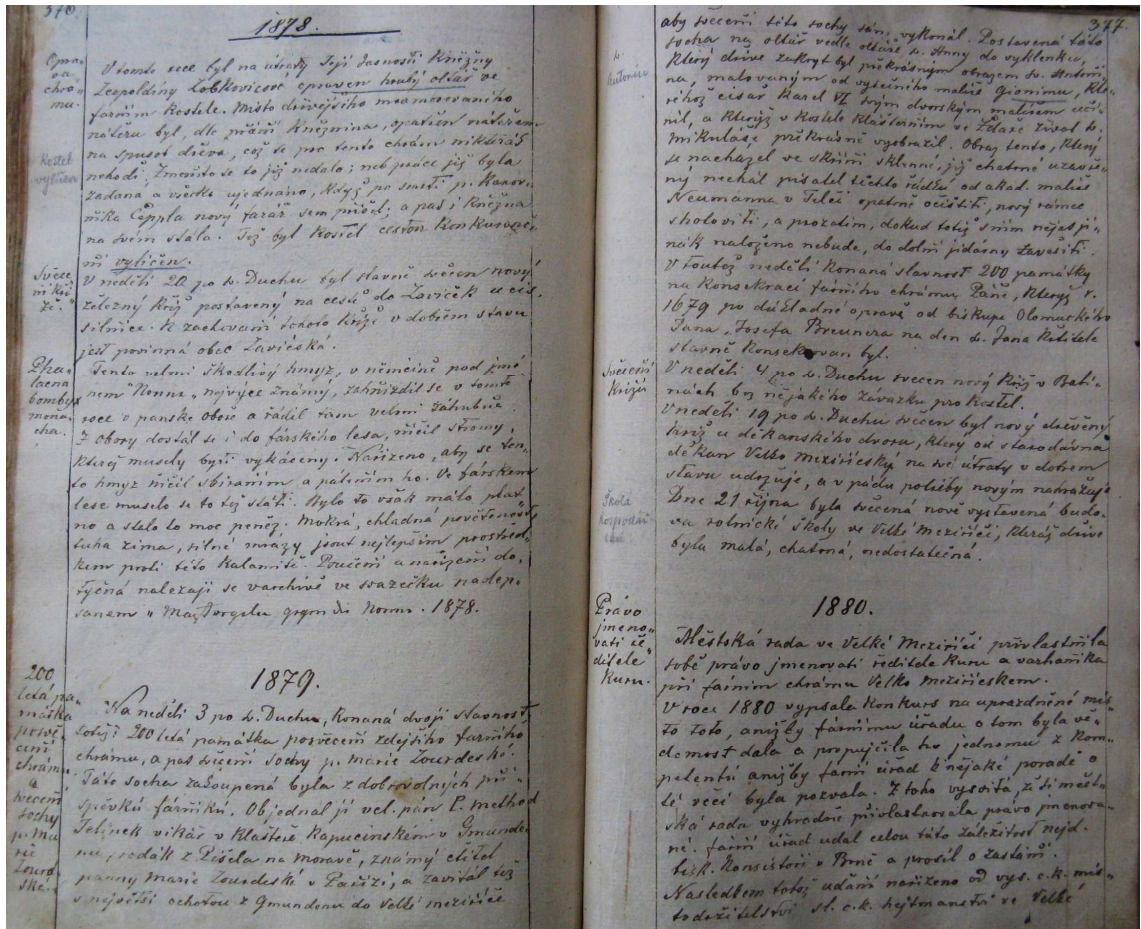 376.
1878.
Opra-
va
chrá-
mu.
V tomto roce byl na útraty Její Jasnosti Kněžny
Leopoldiny Lobkovicové opraven hlavní oltář ve
farním kostele. Místo dřívějšího mramorovaného
nátěru byl, dle přání Kněžnina, opatřen nátěrem
na spusob dřeva, což se pro tento chrám nikterák
nehodí. Změniti se to již nedalo; neb práce již byla
zadaná a všecko ujednáno, když po smrti p. Kanov-
níka Čeppla nový farář sem přišel; a pas i Kněžna
na svém stála. Též byl Kostel cestou Konkurenč-
ní vylíčen.
Kostel
vylíčen
Svěce-
ní kří-
že.
V neděli 20 po sv. Duchu byl slavně svěcen nový
železný Kříž postavený na cestě do Laviček u cís.
silnice. K zachovaní tohoto Kříže v dobrém stavu
jest povinná obec Lavičská.
Phalaena
bombyx
mona-
cha.
Tento velmi škodlivý hmyz, v němčině pod jmé-
nem "Nonne" nejvýce známý, zahnízdil se v tomto
roce v panské oboře a řádil tam velmi záhubně.
Z obory dostál se i do fárského lesa, ničil stromy,
kteréž musely býti vykáceny. Nařízeno, aby se ten-
to hmyz ničil sbíraním a pálením ho. Ve fárském
lese muselo se to též státi. Bylo to však málo plat-
no a stálo to moc peněz. Mokrá, chladná povětrnost,
tuha zima, silné mrázy jsout nejlepším prostřed-
kem proti této Kalamitě. Poučení a nařízení do-
tyčná nalezají se v archivě ve svazečku nadep-
saném " 1878.
1879.
200
letá pa-
mátka
posvě-
cení
chrámu
a
svecení
sochy
p. Ma-
rie
Lourd-
ské.
Na neděli 3 po sv. Duchu, Konaná dvojí slavnost,
totiž: 200 letá památka posvěcení zdejšího farního
chrámu, a pas svěcení sochy p. Marie Lourdeské.
Tato socha zakoupená byla z dobrovolných pří-
spěvků fárníků. Objednal ji vel. pán P. Method
Jelínek vikář v Klášteře Kapucínském v Gmunde-
nu, rodák z Pišela na Moravě, známý ctitel
panny Marie Lourdeské v Paříži, a zavítal též
s největší ochotou z Gmundenu do Velké Meziříče
377.
aby svěcení této sochy sám vykonál. Postavená tato
socha na oltář vedle oltáře sv. Anny do vyklenku,
Který dříve zakryt byl překrásným obrazem sv. Antoni-
na, malovaným od výtečného malíře Gionimu, Kte-
rýhož císař Karel VI svým dvorským malířem uči-
nil, a kterýž v Kostele Klášterním ve Zdaře život sv.
Mikuláše překrásně vyobrazil. Obraz tento, který
se nacházel ve skříni sklenné, již chatrné uzavře-
ný nechál pisatel těchto řádků od akad. malíře
Neumanna v Telči opatrně očistiti, nový rámec
zhotoviti, a prozatím, dokud totiž s ním nějas ji-
nák naloženo nebude, do dolní jídárny zavěsiti.
sv.
Antonín
V toutéž neděli Konaná slavnost 200 památky
na Konsekrací fárního chrámu Páně, Kterýž r.
1679 po důkladné opravě od biskupa Olomuckého
Jana Josefa Breunera na den sv. Jana Křtitele
slavně Konsekrovan byl.
Svěcení
Křížů
V neděli 4 po sv. Duchu svecen nový Kříž v Bali-
nách bez nějakého závazku pro Kostel.
V neděli 19 po sv. Duchu svěcen byl nový dřevěný
Kříž u děkanského dvoru, který od starodávna
děkan Velko Meziříčský na své útraty v dobrém
stavu udržuje, a v pádu potřeby novým nahražuje
Škola
hospodář-
ská.
Dne 21 října byla svěcená nově vystavená budo-
va rolnické školy ve Velké Meziříčí, kteráž dříve
byla malá, chatrná, nedostatečná.
1880.
Právo
jmeno-
vati ře-
ditele
Kuru.
Městská rada ve Velké Meziříčí přivlastnila
sobě právo jmenovati ředitele Kuru a varhaníka
při farním chrámu Velko Meziříčském.
V roce 1880 vypsala Konkurs na uprázdněné mís-
to toto, anižby fárnímu úřadu o tom byla vě-
domost dala a propujčila ho jednomu z Kom-
petentů anižby fární úřad k nějaké poradě o
té věci byla pozvala. Z toho vysvítá, že si měst-
ská rada vyhradně přivlastňovala právo jmenova-
ní. Fární úřad udal celou tuto záležitost nejd.
bisk. Konsistoři v Brně a prosil o zastání.
Následkem tohož udání nařízeno od vys. c.k. mís-
todržitelství sl. c.k. hejtmanství ve Velké